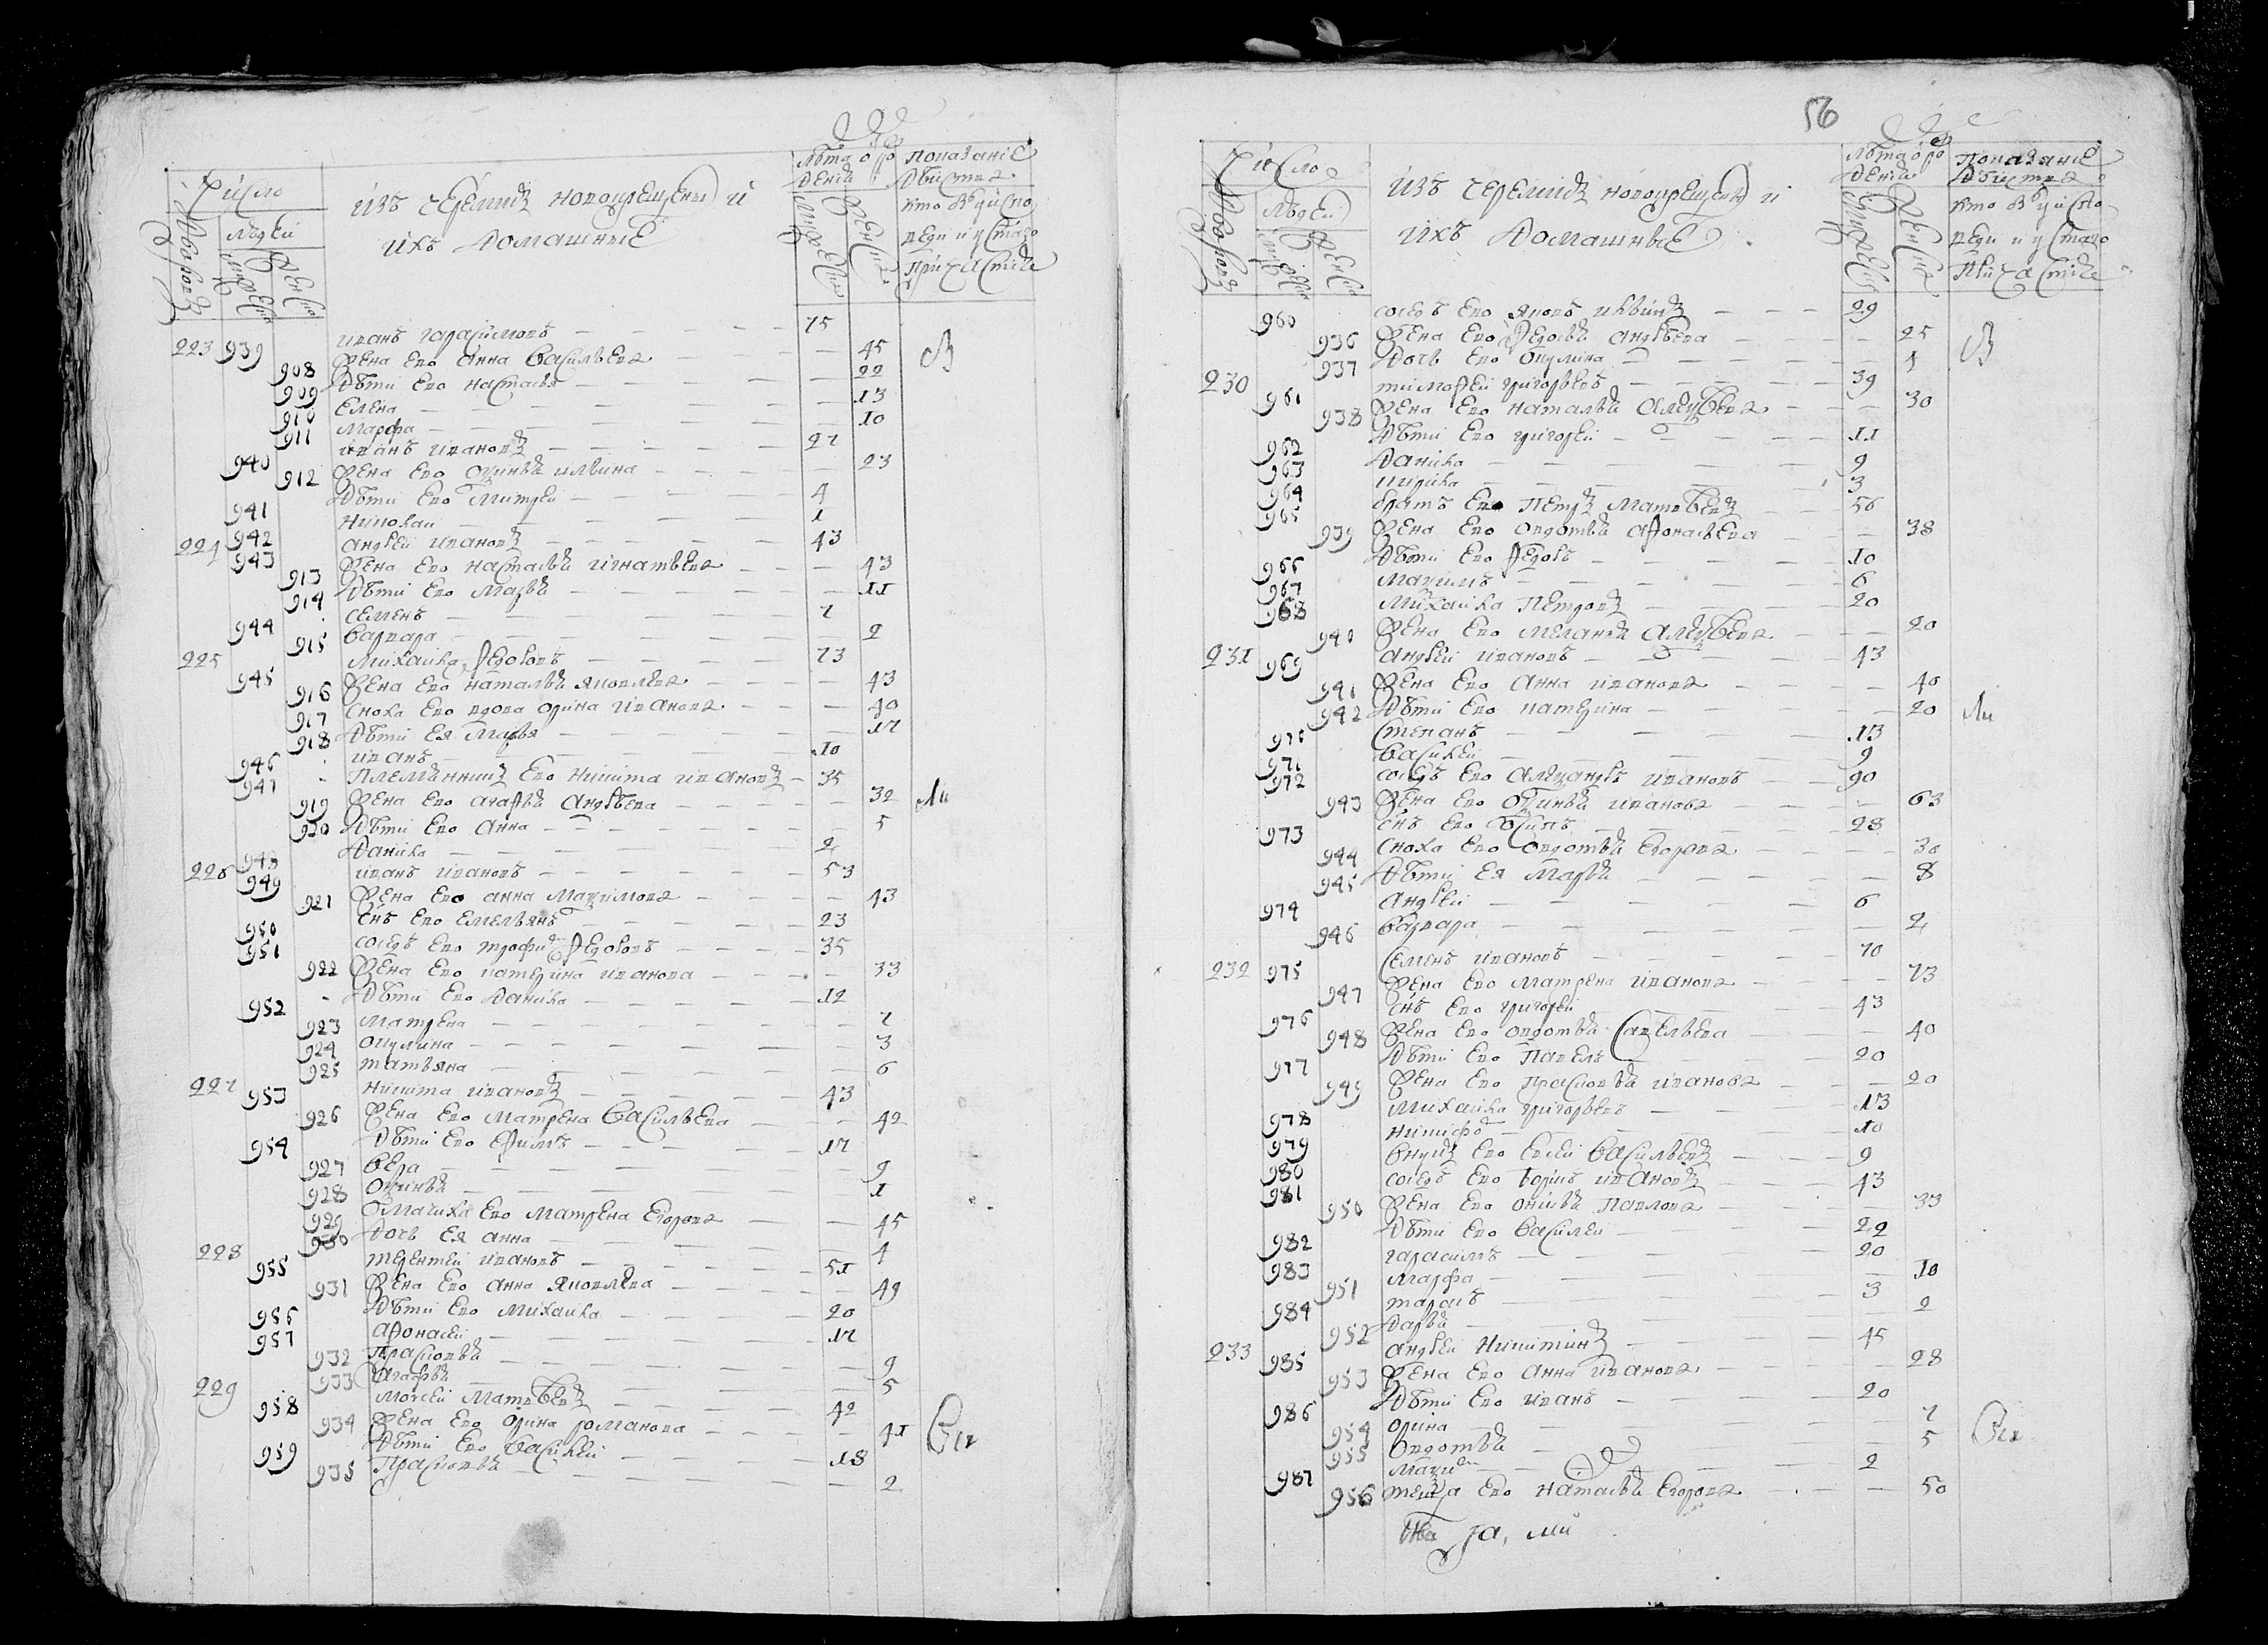 Число
Людеи
Дворовъ
Мужеска
Женска
изъ черемисъ новокрещены и
ихъ домашныя
лѣта о ро
ждения
Мужеска
Женска
показание
действа
кто въ число
веди и у Свято
причастия
223 939 иванъ гарасимовъ — 75
908 жена ево анна васильева — 45
909 дѣти ево настасья — 22
910 елена — 13
911 марфа — 10
940 иванъ ивановъ — 27
912 жена ево огринья ильина — 23
941 дѣти ево митрей — 4
942 николаи — 1
224 943 андреи ивановъ — 43
913 жена ево настасья игнатьева — 43
914 дѣти ево марья — 11
944 семенъ — 7
915 варвара — 2
225 945 михаила федоровъ — 73
916 жена ево наталья яковлева — 43
917 сноха ево вдова орина иванова — 40
918 дѣти ея марья — 17
946 иванъ — 10
947 племянникъ ево никита ивановъ — 35
919 жена ево агафья андреева — 32
920 дѣти ево анна — 5
948 данила — 2
226 949 иванъ ивановъ — 53
921 жена ево анна максимова — 43
950 снъ ево емельянъ — 23
951 сосѣдъ ево трофимъ федоровъ — 35
922 жена ево катерина иванова — 33
952 дѣти ево данила — 12
923 матрена — 7
924 окулина — 3
925 татьяна — 6
227 953 никита ивановъ — 43
926 жена ево матрена васильева — 42
954 дѣти ево ефимъ — 17
927 вера — 9
928 огринья — 1
929 мачиха ево матрена егорова — 45
930 дочь ея анна — 4
228 955 терентеи ивановъ — 51
931 жена ево анна яковлева — 49
956 дѣти ево михаила — 20
957 афонасеи — 17
932 прасковья — 9
933 агафья — 5
229 958 моисеи матвеевъ — 42
934 жена ево орина романова — 41
959 дѣти ево василеи — 18
935 прасковья — 2
56
Число
Людеи
Дворовъ
Мужеска
Женска
изъ черемисъ новокрещены и
ихъ домашныя
лѣта о ро
ждения
Мужеска
Женска
показание
действа
кто въ число
веди и у Свято
причастия
960 сосѣдъ ево яковъ ильинъ — 29
936 жена ево федосья андреева — 25
937 дочь ево окулина — 4
230 961 тимофеи григорьевъ — 39
938 жена ево наталья алексѣева — 30
962 дѣти ево григореи — 11
963 данила — 9
964 кирила — 3
965 братъ ево петръ матвеевъ — 56
939 жена ево овдотья афонасьева — 38
966 дѣти ево федоръ — 10
967 максимъ — 6
968 михаила петровъ — 20
940 жена ево меланья алексѣева — 20
231 969 андреи ивановъ — 43
941 жена ево анна иванова — 40
942 дѣти ево катерина — 20
970 степанъ — 13
971 василеи — 9
972 сосѣдъ ево александръ ивановъ — 90
943 жена ево огринья иванова — 63
973 снъ ево осипъ — 28
944 сноха ево овдотья егорова — 30
945 дѣти ея марья — 8
974 андреи — 6
946 варвара — 2
232 975 семенъ ивановъ — 70
947 жена ево матрена иванова — 73
976 снъ ево григореи — 43
948 жена ево овдотья савельева — 40
977 дѣти ево павелъ — 20
949 жена ево прасковья иванова — 20
978 михаила григорьевъ — 13
979 никифоръ — 10
980 внукъ ево елеи васильевъ — 9
981 сосѣдъ ево борисъ ивановъ — 43
950 жена ево онисья павлова — 33
982 дѣти ево василеи — 22
983 гарасимъ — 20
951 марфа — 10
984 тарасъ — 3
952 дарья — 2
233 985 андреи никитинъ — 45
953 жена ево анна иванова — 28
986 дѣти ево иванъ — 20
954 орина — 7
955 овдотья — 5
987 максимъ — 2
956 теща ево наталья егорова — 50